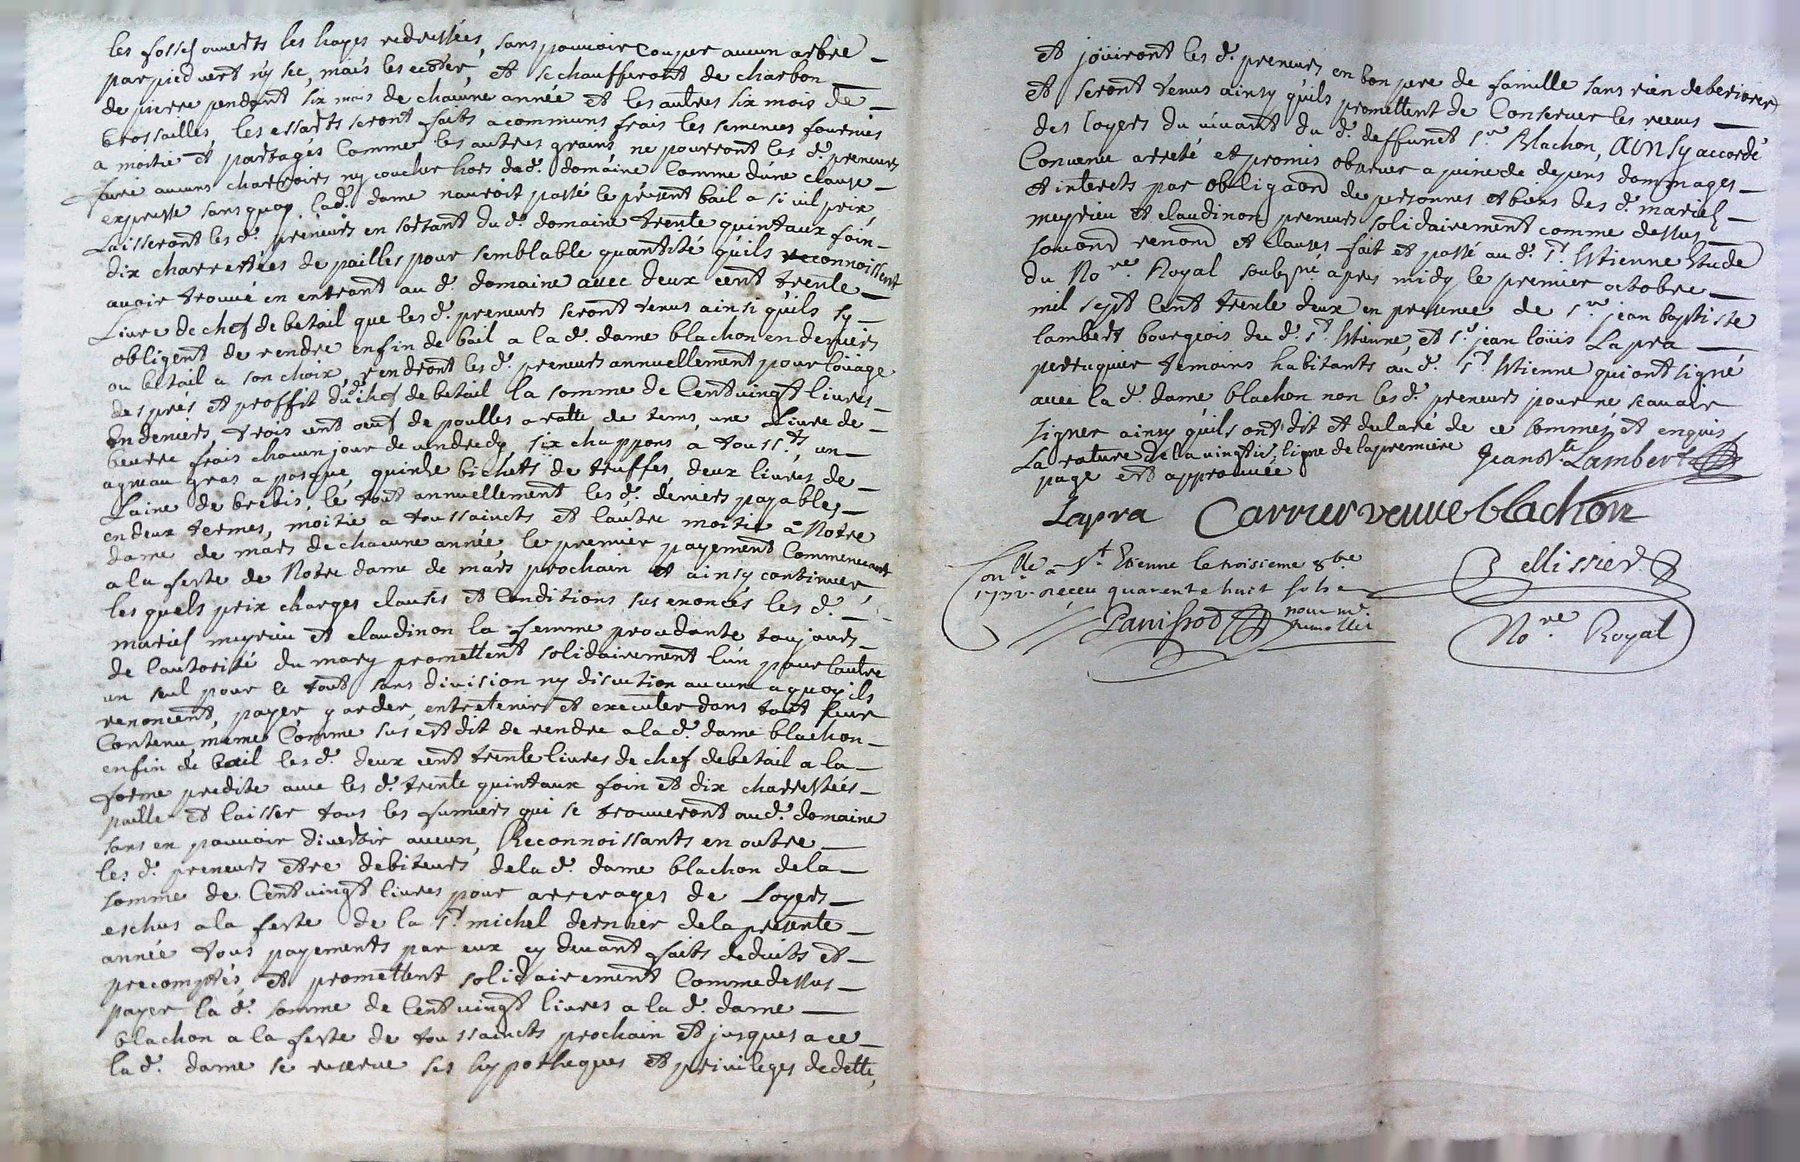 les fossés ouverts les hayes redressées, sans pouvoir couper aucun arbre
par pied vert ny sec, mais les ecoter, et se chaufferont de charbon
de pierre pendant six mois de chacune année et les autres six mois de
brossailles, les essarts seront faits a communs frais les semences fournies
a moitié et partagés comme les autres grains, ne pourront les d. preneurs
faire aucuns charrois ny coucher hors du d. domaine comme d'une clause
expresse sans quoy lad. dame nauroit passé le présent bail a si vil prix,
Laisseront les d. preneurs en sortant du d. domaine trente quintaux foin
dix charrettées de pailles pour semblable quantité quils reconnoissent
avoir trouvé en entrant au d. domaine avec deux cent trente
Livre de chef de betail que les d. preneurs seront tenus ainsi quils sy
obligent de rendre en fin de bail a la d. dame blachon en deniers
ou betail a son choix, rendront les d. preneurs annuellement pour loüage
des prés et proffit du d. chef de betail la somme de Cent vingt livres
en deniers, trois cent oeuf de poulles a ratte de tems, une Livre de
beurre frais chacun jour de vendredy, six chappons a touss.ts, un
agneau gras a pasque, quinze bichets de truffes, deux livres de
Laine de brebis, le tout annuellement, les d. deniers payables
en deux termes, moitié a toussaincts et l'autre moitié a Notre
dame de mars de chacune année, le premier payement Commencant
a la feste de Notre dame de mars prochain et ainsy continuer,
les quels prix charges clauses et Conditions sus enoncés les d.
mariés meyrieu et claudinon la femme procedante toujours
de l'autorité du mary promettent solidairement l'un pour l'autre
un seul pour le tout sans division ny discution aucune a quoy ils
renoncent, payer, garder, entretenir et executer dans tout leur
Contenu, meme Comme sus est dit de rendre a la d. dame blachon
en fin de bail les d. deux cent trente livres de chef de betail a la
forme predite avec les d. trente quintaux foin et dix charrettées
paille et laisser tous les fumiers qui se trouveront au d. domaine
sans en pouvoir divertir aucun, Reconnoissants en outre
les d. preneurs etre debiteurs de la d. dame blachon de la
somme de Cent vingt livres pour arrerages de Loyers
eschus a la feste de la St. michel dernier de la presente
année tous payements par eux cy devant faits deduits et
precomptés, et promettent solidairement Comme dessus
payer la d. somme de Cent vingt livres a la d. dame
blachon a la feste de toussaincts prochain et jusques a ce
la d. dame se reserve ses hypotheques et privileges de dette,
et joüiront les d. preneurs en bon pere de famille sans rien deteriorer
et seront tenus ainsy quils promettent de Conserver les
des loyers du vivant du d. deffunct sr. Blachon, AINSY accordé
Convenu arreté et promis observer a peine de depens dommages
et interets par obligaon de personnes et biens des d. mariés
meyrieu et claudinon preneurs solidairement comme dessus
soumon renon et clauses fait et passé au d. St. Etienne Etude
du No.re Royal soubsné apres midy le premier octobre
mil sept Cent trente deux en presence de sr. jean baptiste
lambert bourgeois du d. St. Etienne, et Sr. jean loüis Lapra
perruquier temoins habitants au d. St. Etienne qui ont signé
avec la d. dame blachon non les d. preneurs pour ne scavoir
signer ainsy quils ont dit et declaré de ce sommés et enquis
La rature de la vingt six.e ligne de la premiere
page est approuvée
Jean Bte Lambert
Lapra Carrier veuve blachon
Con.lle a St. Etienne le troisieme 8bre
1732 receu quarente huit sols
Pellissier
No.re Royal